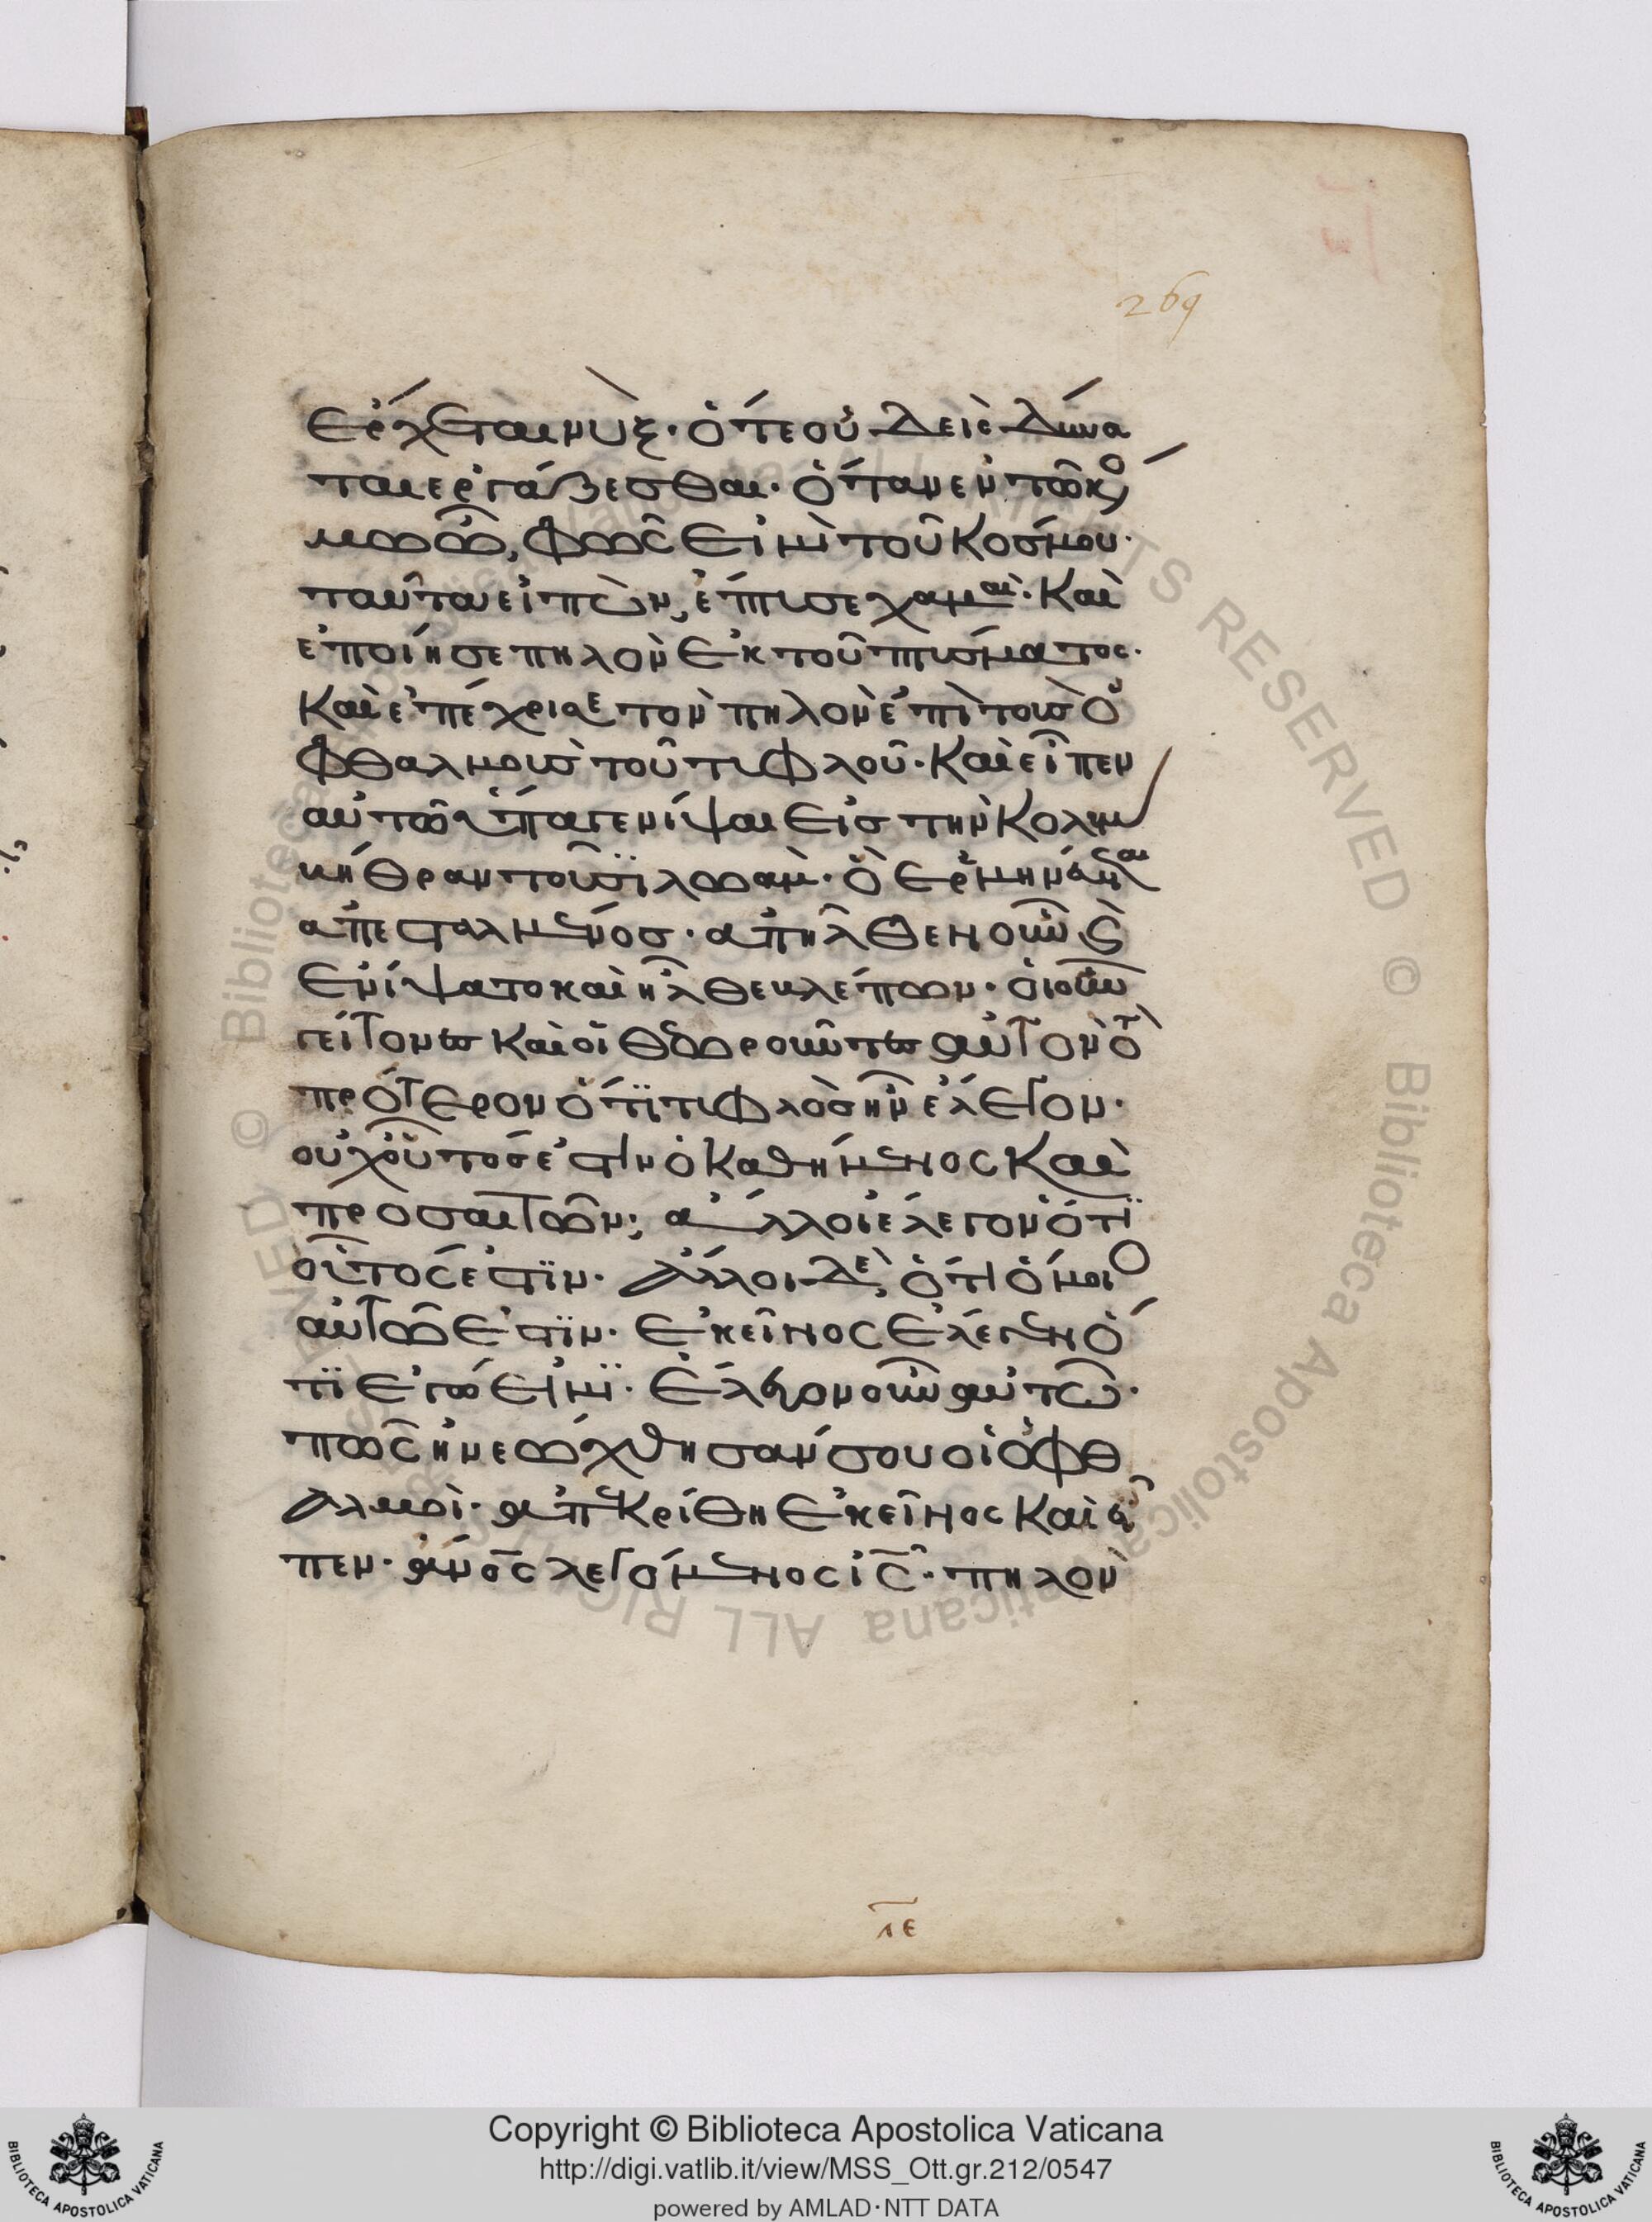 269
ἔρχεται νὺξ· ὅτε οὐδεὶς δύνα
ται ἐργάζεσθαι· ὅταν ἐν τῶ κό
σμω ὦ, φῶς εἰμὶ τοῦ κόσμου·
ταῦτα εἰπὼν, ἔπτυσε χαμαὶ· Καὶ
ἐποίησε πηλὸν ἐκ τοῦ πτύσματος·
Καὶ ἐπέχρισε τὸν πηλὸν ἐπὶ τοὺς ὀ
φθαλμοὺς τοῦ τυφλοῦ· Καὶ εἶπεν
αὐτῶ ὕπαγε νίψαι εἰς τὴν Κολυμ
βήθραν τοῦ σιλωὰμ· ὃ ἑρμηνεύεται
ἀπεσταλμένος· ἀπῆλθεν οὖν καὶ
ἐνίψατο καὶ ἦλθε βλέπων· οἱ οὖν
γείτονες Καὶ οἱ θεωροῦντες αὐτὸν τὸ
πρότερον ὅτι τυφλὸς ἦν ἔλεγον·
οὐχ οὗτός ἐστιν ὁ Καθήμενος Καὶ
προσαιτῶν; ἄλλοι ἔλεγον ὅτι
οὗτός ἐστιν· ἄλλοι δὲ, ὅτι ὅμοιο
αὐτῶ ἐστιν· ἐκεῖνος ἔλεγεν ὅ
τι ἐγώ εἰμι· ἔλεγον οὖν αὐτῶ·
πῶς ἠνεώχθησάν σου οἱ ὀφθ
αλμοὶ· ἀπεκρίθη ἐκεῖνος Καὶ εἶ
πεν· ἄνος λεγόμενος ις· πηλὸν
λε
Copyright © Biblioteca Apostolica Vaticana
http://digi.vatlib.it/view/MSS_Ott.gr.212/0547
powered by AMLAD·NTT DATA
BIBLIOTECA APOSTOLICA VATICANA
BIBLIOTECA APOSTOLICA VATICANA